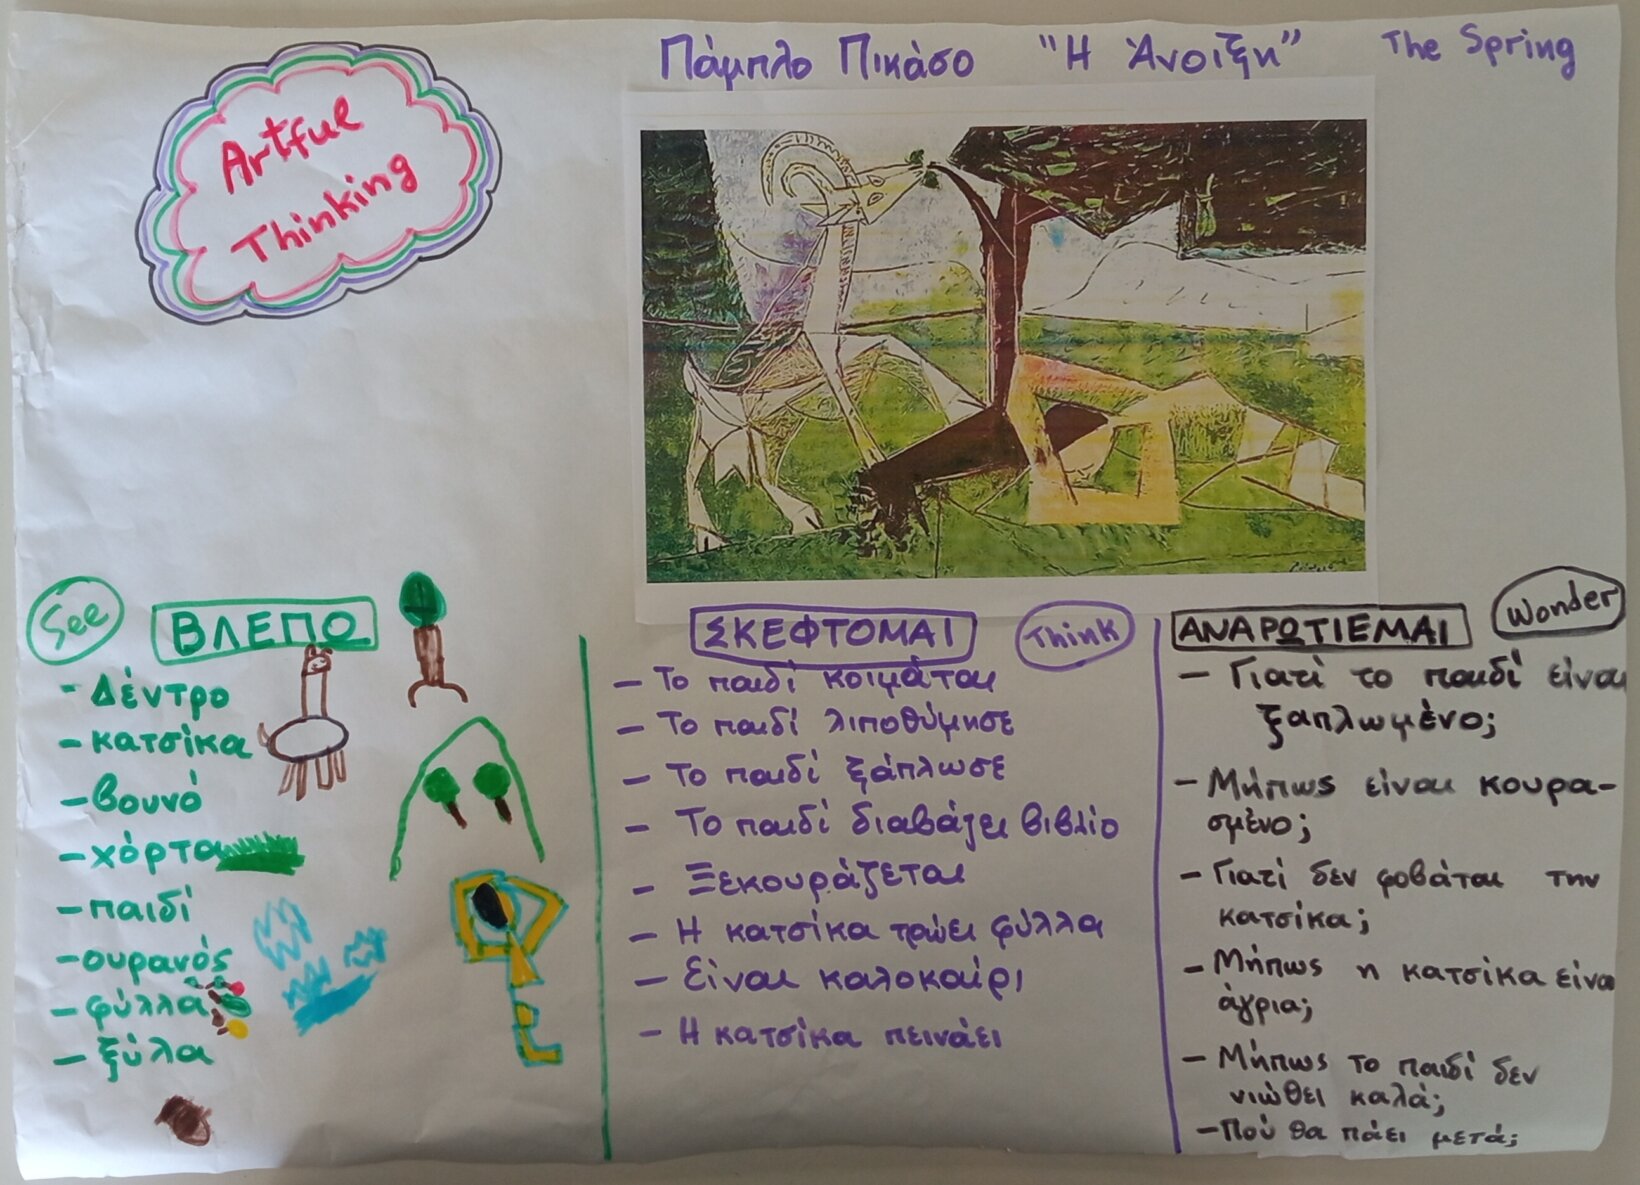 Πάμπλο Πικάσο "Η Άνοιξη" The Spring
Artful
Thinking
See
ΒΛΕΠΩ
- Δέντρο
- κατσίκα
- βουνό
- χόρτα
- παιδί
- ουρανός
- φύλλα
- ξύλα
ΣΚΕΦΤΟΜΑΙ
Think
- Το παιδί κοιμάται
- Το παιδί λιποθύμησε
- Το παιδί ξάπλωσε
- Το παιδί διαβάζει βιβλίο
- Ξεκουράζεται
- Η κατσίκα τρώει φύλλα
- Είναι καλοκαίρι
- Η κατσίκα πεινάει
ΑΝΑΡΩΤΙΕΜΑΙ
Wonder
- Γιατί το παιδί είναι
ξαπλωμένο;
- Μήπως είναι κουρα-
σμένο;
- Γιατί δεν φοβάται την
κατσίκα;
- Μήπως η κατσίκα είναι
άγρια;
- Μήπως το παιδί δεν
νιώθει καλά;
- Πού θα πάει μετά;